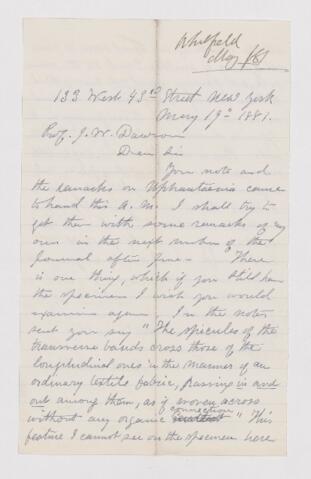 Whitfield
May /81
133 West 43rd Street New York
May 19th 1881.
Prof. J. W. Dawson
Dear Sir
Your note and
the remarks on Uphantaenia came
to hand this A. M. I shall try to
get them with some remarks of my
own in the next number of the
Journal after June. There
is one thing, which if you still have
the specimen I wish you would
examine again. In the notes
sent you say "The spicules of the
transverse bands cross those of the
longitudinal ones in the manner of an
ordinary textile fabric, passing in and
out among them, as if woven across
connection
without any organic "This
feature I cannot see on the specimen here